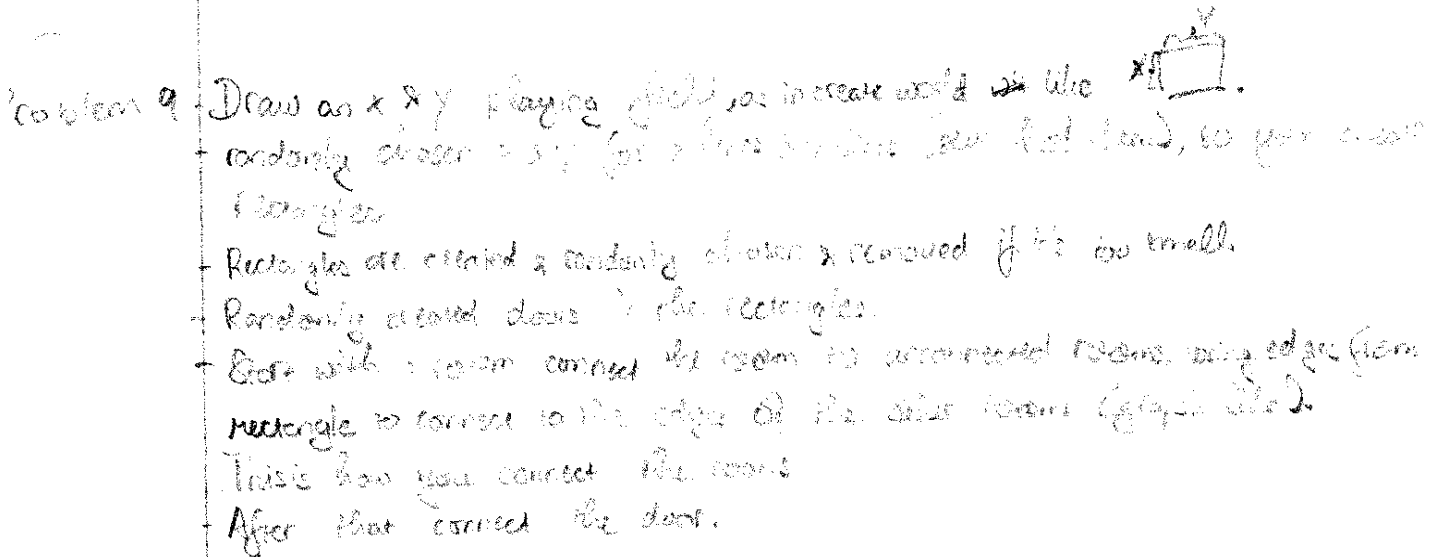 Problem 9 - Draw an x * y playing field, as in create world like X Y.
- randomly chosen so your
rectangles
- Rectangles are created & randomly chosen & removed if it's too small.
- Randomly created doors the rectangles.
- Start with room connect the room to unconnected rooms using edges from
rectangle to connect to the edge of the other rooms (graph like).
This is how you connect the rooms
- After that connect the door.